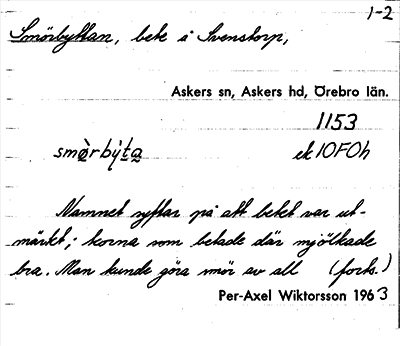 1-2
Smörbyttan, bete å Svenstorp,
Askers sn, Askers hd, Örebro län.
1153
smö̀rby̆ta ek 10F0h
Namnet syftar på att betet var ut-
märkt; korna som betade där mjölkade
bra. Man kunde göra smör av all (forts.)
Per-Axel Wiktorsson 1963